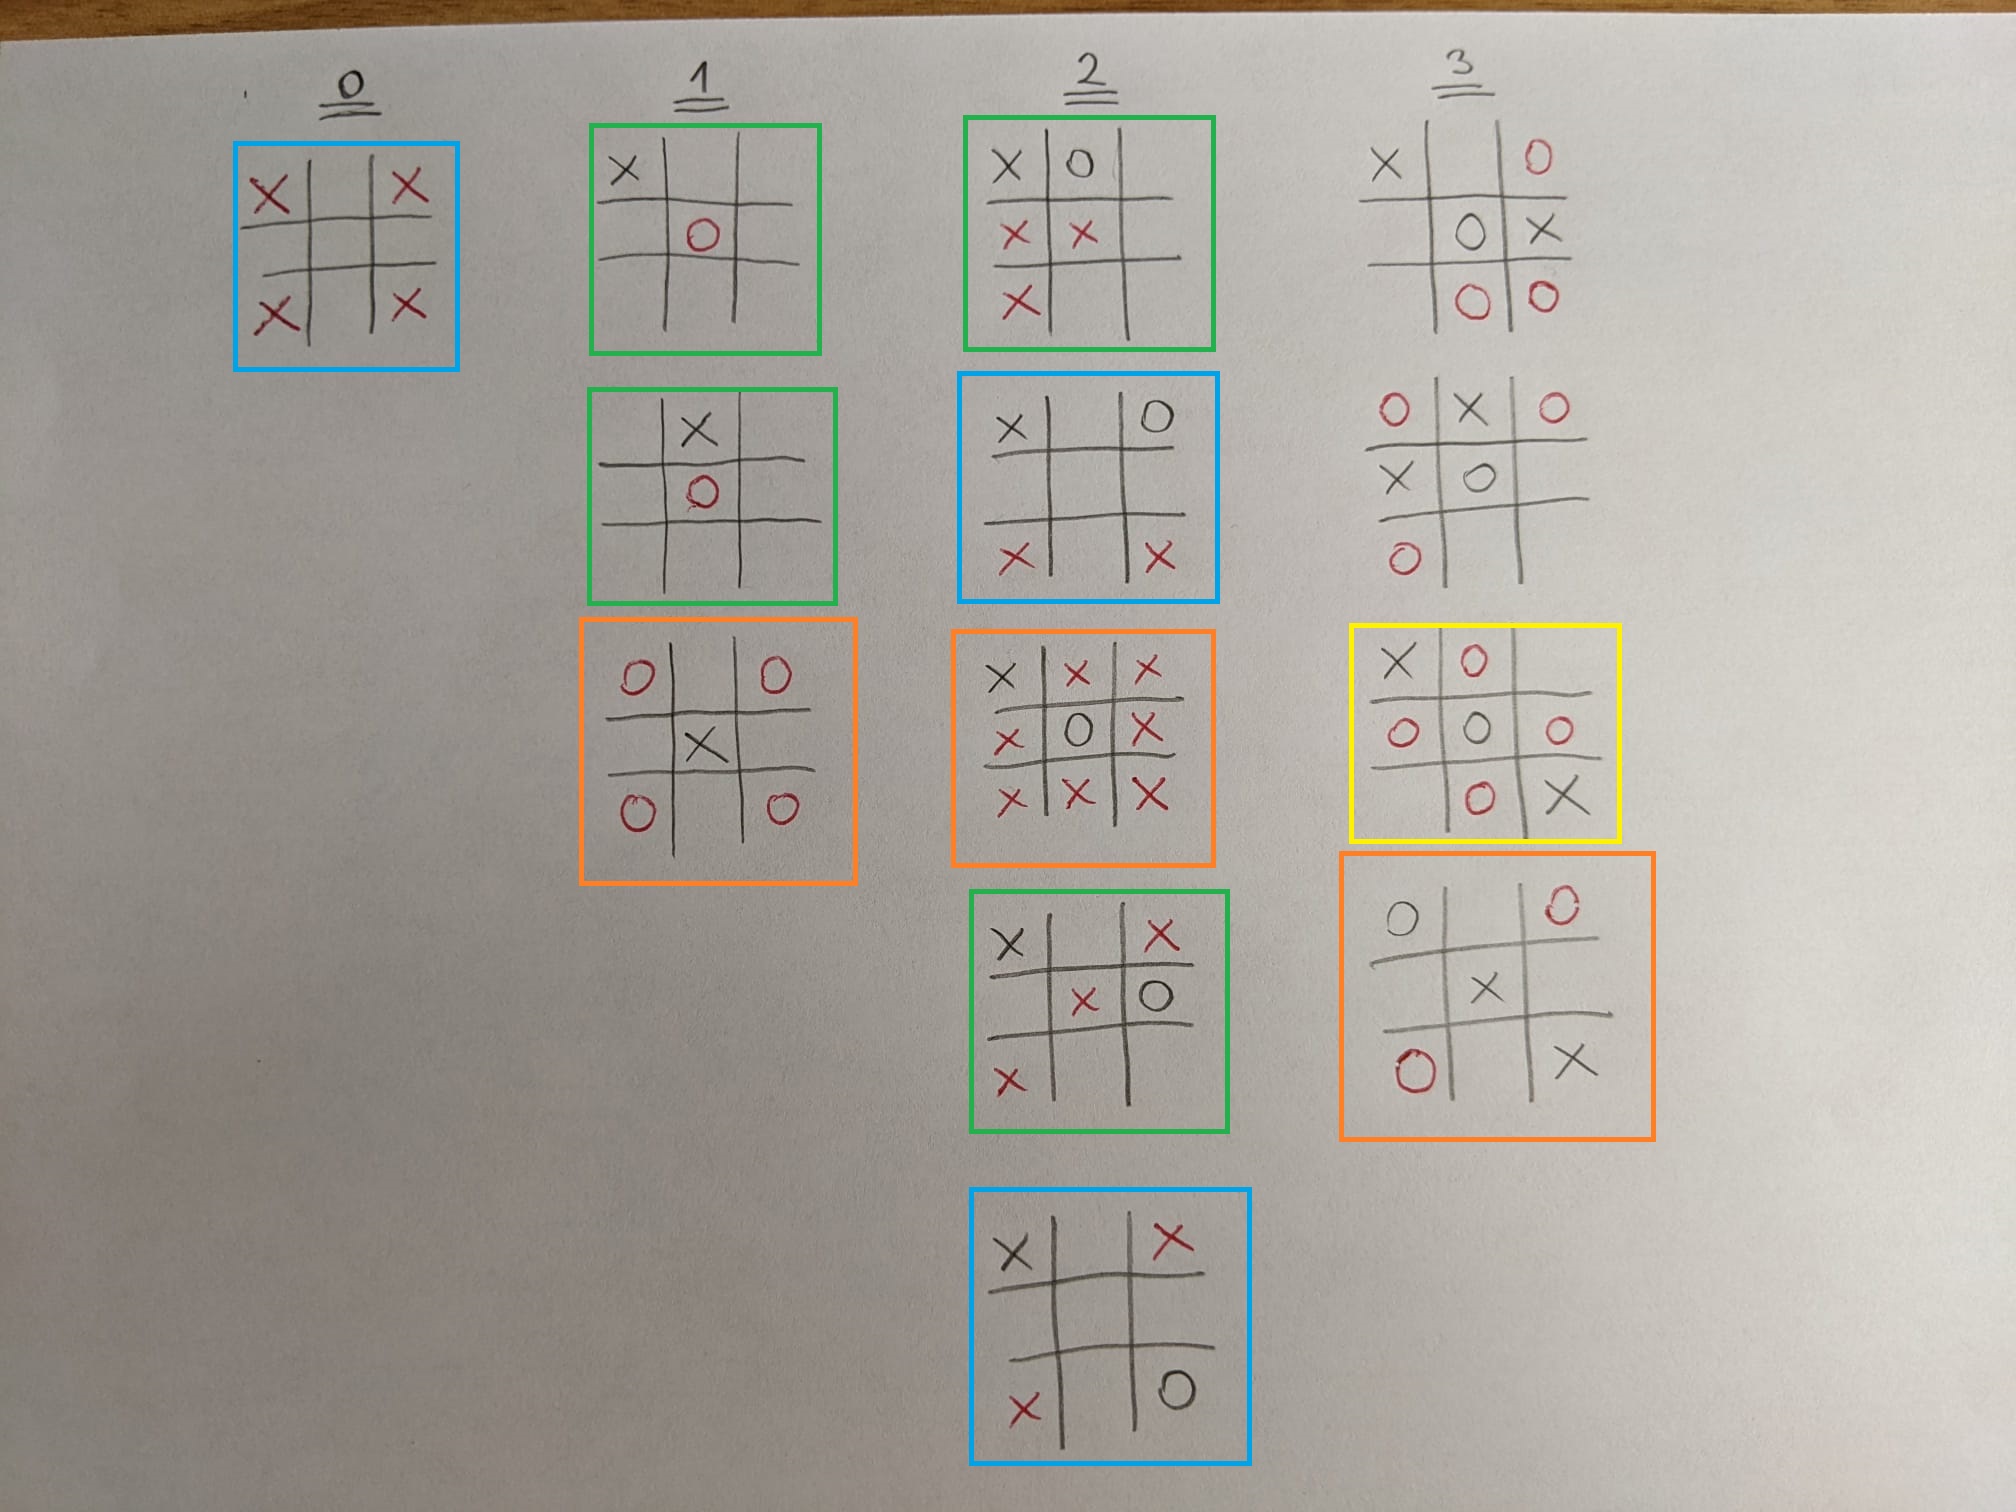 0 1 2 3
X X
X X
X
O
X
O
O O
X
O O
X O
X X
X
X O
X X
X X X
X O X
X X X
X X
X O
X
X X
X O
X O
O X
O O
O X O
X O
O
X O
O O O
O X
O O
X
O X